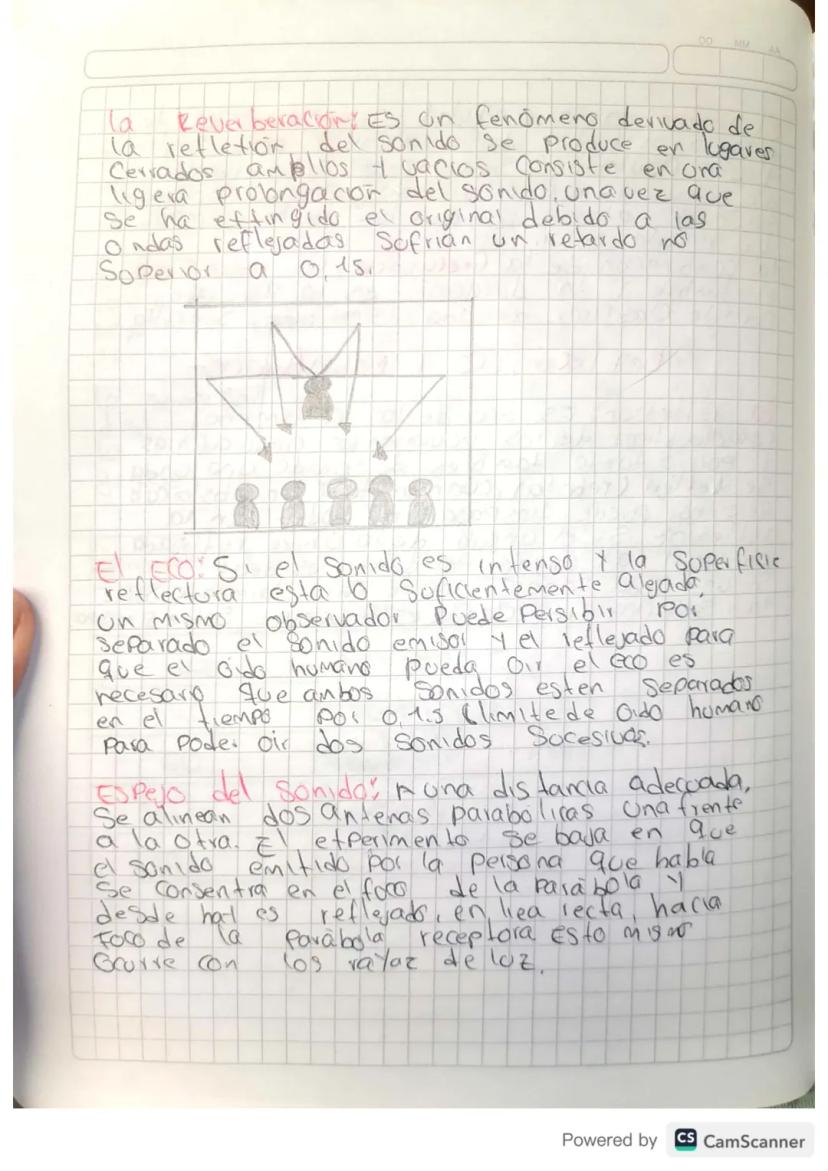 DD MM AA
La Reverberación: ES un fenómeno derivado de
la refletión del sonido se produce en lugares
Cerrados amplios y vacios consiste en una
ligera prolongación del sonido, una vez que
se ha extingido el original debido a las
ondas reflejadas sofrian un retardo no
Soperior a 0,1s.
El ECO: Si el sonido es intenso y la superficie
reflectora esta lo suficientemente alejada,
un mismo observador puede persibir por
separado el sonido emisor y el reflejado para
que el oido humano pueda oir el eco es
necesario que ambos sonidos esten separados
en el tiempo por 0,1.s (limite de oido humano
para poder oir dos sonidos sucesivos.
Espejo del sonido: A una distancia adecuada,
se alinean dos antenas parabolicas una frente
a la otra. El etperimento se basa en que
el sonido emitido por la persona que habla
se consentra en el foco de la parábola y
desde hay es reflejado, en liea recta, hacia
foco de la parábola receptora esto mismo
ocurre con los rayaz de luz.
Powered by CS CamScanner